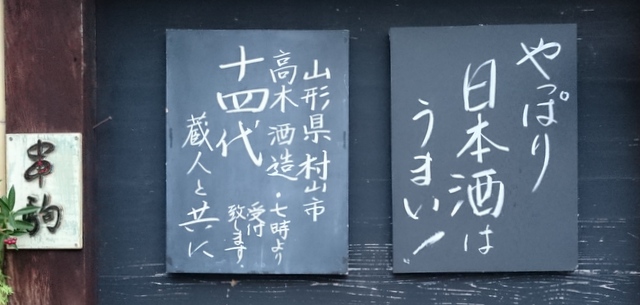 やっぱり
日本酒は
うまい!
山形県村山市
高木酒造・七時より
受付
致します。
十四代
蔵人と共に
串駒